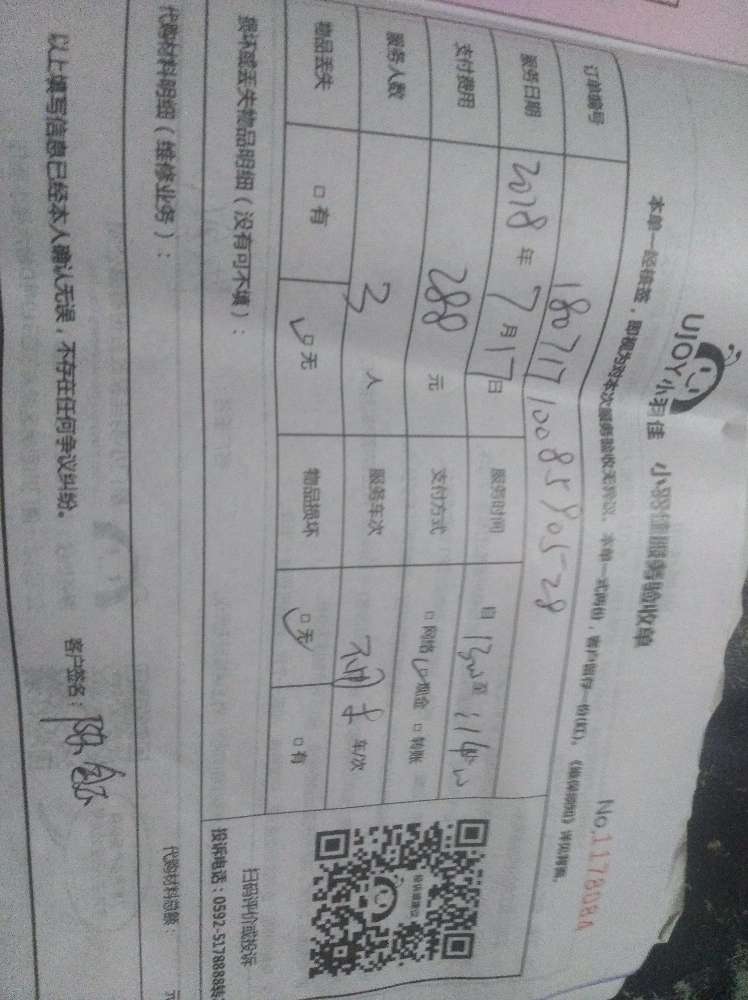 UJOY小羽佳 小羽佳服务验收单
No.1178084
本单一经核签,即视为对本次服务验收无异议。本单一式两份,客户留存一份(红)。《维保细则》详见背面。
订单编号 180717100858905528
服务日期 2018年7月17日 服务时间 自 至
支付费用 288元 支付方式 □网络 □现金 □转账
服务人数 3人 服务车次 不用车 车/次
物品丢失 □有 □无 物品损坏 □无 □有
损坏或丢失物品明细(没有可不填):
扫码评价或投诉
投诉电话:0592-5178888转
代购材料明细(维修业务): 代购材料总额: 元
以上填写信息已经本人确认无误,不存在任何争议纠纷。 客户签名: